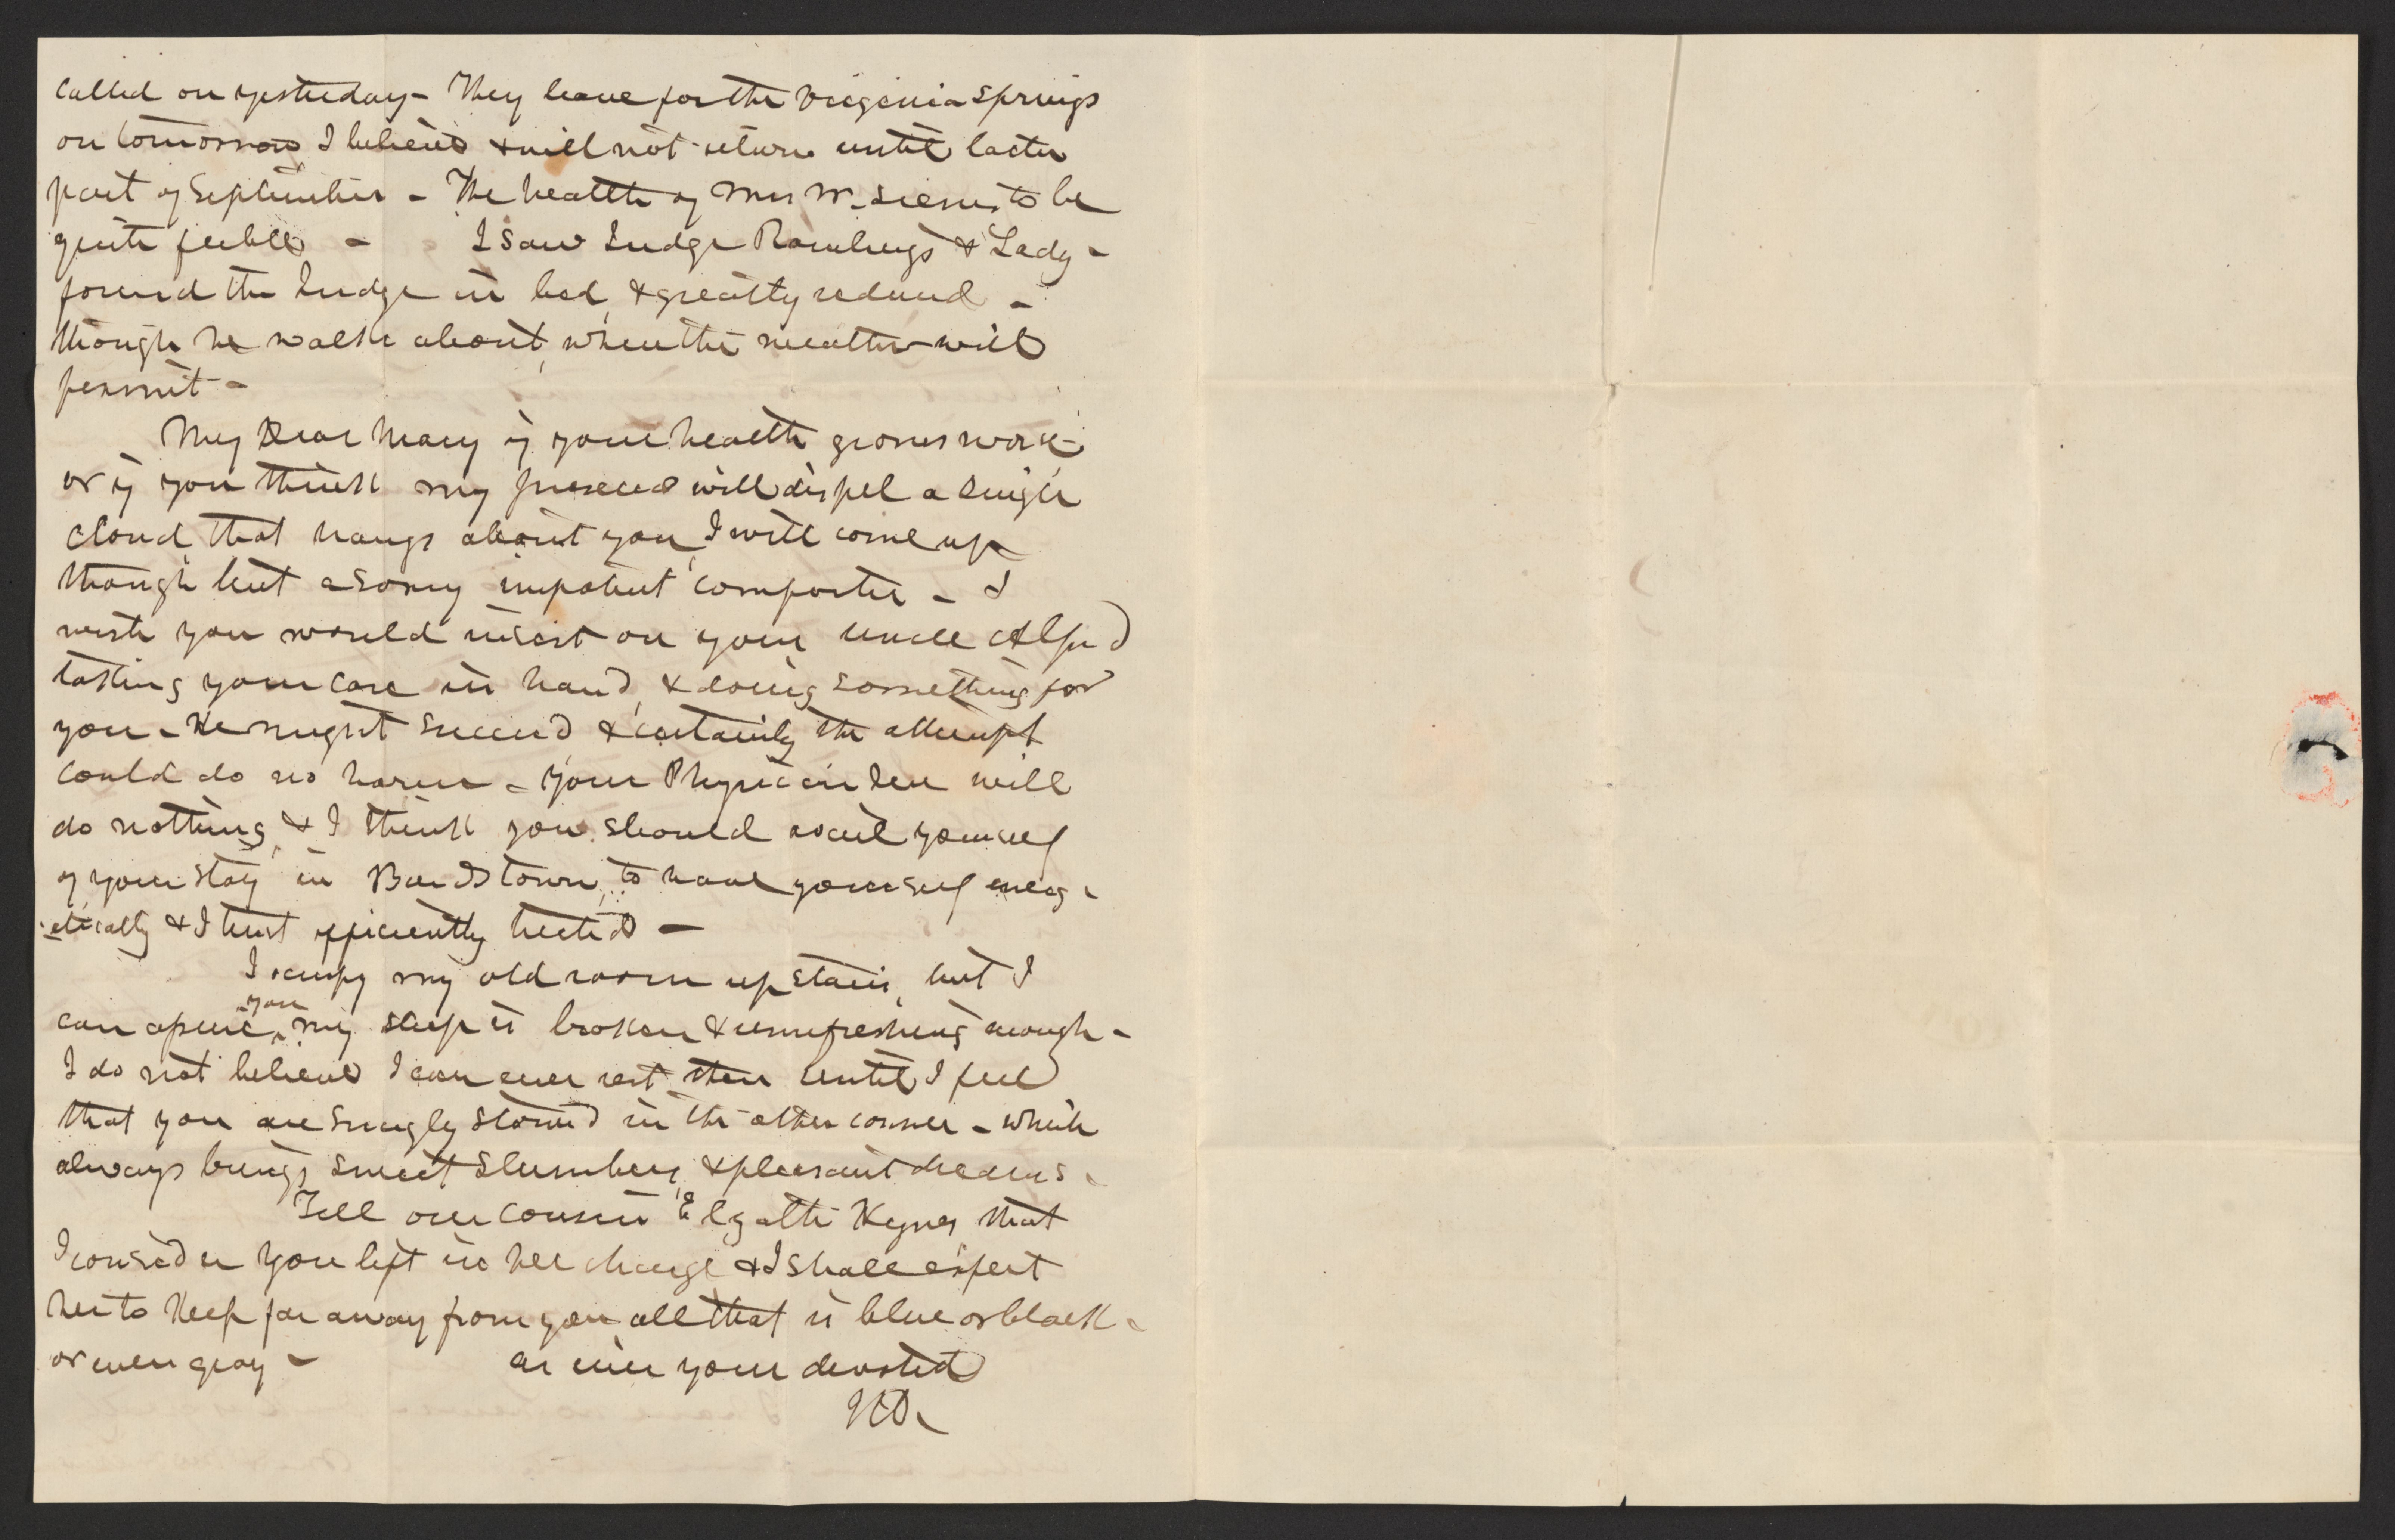 called on yesterday - They leave for the Virginia Springs
on tomorrow I believe & will not return until latter
part of September - The health of Mrs W. seems to be
quite feeble - I saw Judge Rowlings & Lady -
found the Judge in bed, & greatly reduced -
though he walks about, when the weather will
permit -
My Dear Mary if your health grows worse
or if you think my presence will dispel a single
cloud that hangs about you, I will come up
though but a sorry impotent comforter - I
wish you would insist on your uncle Alfred
taking your case in hand, & doing something for
you - He might succeed & certainly the attempt
could do no harm - Your Physician here will
do nothing, & I think you should avail yourself
of your stay in Bardstown, to have yourself energ-
-etically & I trust efficiently treated -
I occupy my old room up stairs, but I
can assure you my sleep is broken & unrefreshing enough -
I do not believe I can ever rest there until I feel
that you are snugly stowed in the other corner - which
always brings sweet slumbers, & pleasant dreams -
Tell our cousin that
I consider you left in her charge & I shall expect
her to keep far away from you all that is blue or black -
or even gray - as ever your devoted